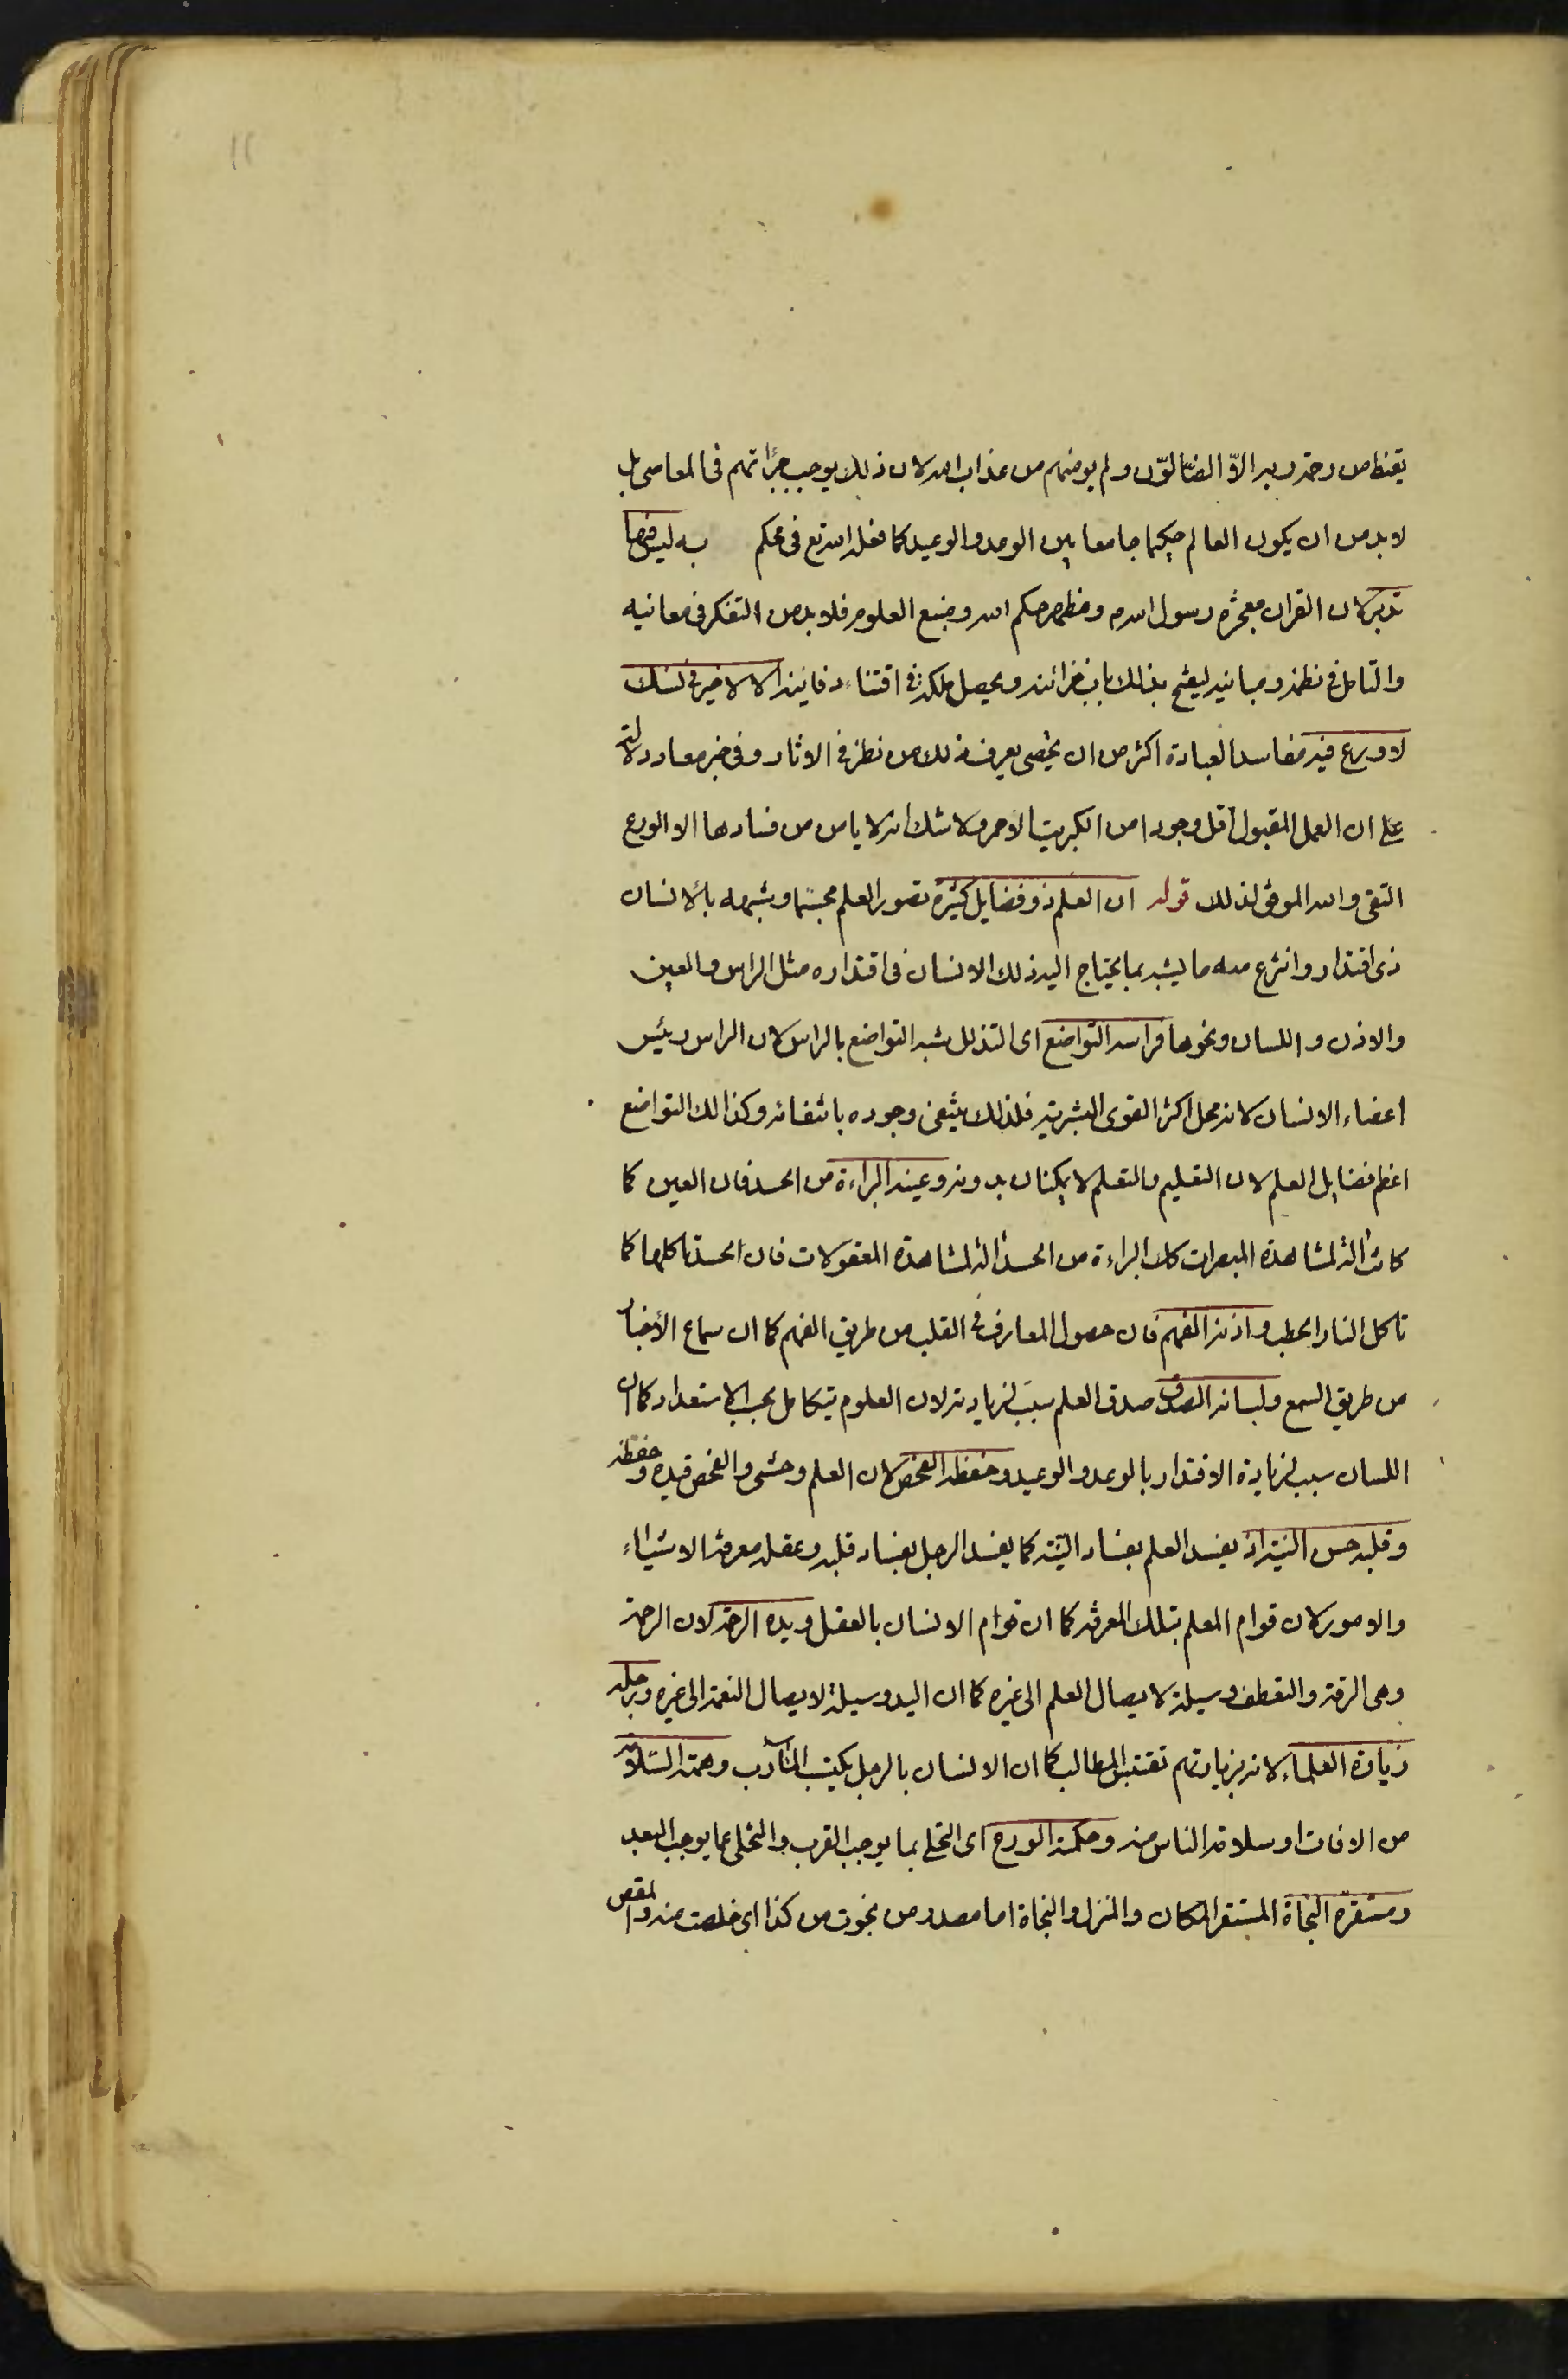 يقنط من رحمة ربه الاّ الضّالّون ولم يومنهم من عذاب الله لان ذلك يوجب جرأتهم فى المعاصى بل
لا بد من ان يكون العالم حكيما جامعا بين الوعد والوعيد كما فعله الله تع فى محكم به ليس فيها
تدبر لان القران معجزة رسول الله ص ومظهر حكم الله ومنبع العلوم فلا بد من التفكر فى معانيه
والتامل فى نظمه ومبانيه ليفتح بذالك باب خزائنه ويحصل ملكة فى اقتناء دفاينه الا لا خير فى نسك
لا ورع فيه مفاسد العبادة اكثر من ان يحصى يعرف ذلك من نظر فى الاثار وفى خبر معاد دلالة
على ان العمل المقبول اقل وجودا من الكبريت الاحمر ولا شك انه لا يامن من فسادها الا الورع
التقى والله الموفق لذلك قوله ان العلم ذو فضايل كثيرة تصور العلم مجسّما وشبهه بالانسان
ذى اقتدار وانتزع منه ما يشبه بما يحتاج اليه ذلك الانسان فى اقتداره مثل الراس والعين
والاذن واللسان ونحوها فراسه التواضع اى التذلل شبه التواضع بالراس لان الراس رئيس
اعضاء الانسان لانه محل اكثر القوى البشرية فلذلك ينتفى وجوده بانتفائه وكذالك التواضع
اعظم فضايل العلم لان التعليم والتعلم لا يمكنان بدونه وعينه البراءة من الحسد فان العين كما
كانت آلة لمشاهدة المبصرات كك البراءة من الحسد آلة لمشاهدة المعقولات فان الحسد ياكلها كما
تاكل النار الحطب واذنه الفهم فان حصول المعارف فى القلب من طريق الفهم كما ان سماع الأخبار
من طريق السمع ولسانه الصدق صدق العلم سبب لزيادته لان العلوم يتكامل بحسب الاستعداد كما ان
اللسان سبب لزيادة الاقتدار بالوعد والوعيد وحفظه الفحص لان العلم وحشى والفحص قيده وحفظه
وقلبه حسن النية اذ يفسد العلم بفساد النية كما يفسد الرجل بفساد قلبه وعقله معرفة الاشياء
والامور لان قوام العلم بتلك المعرفة كما ان قوام الانسان بالعقل ويده الرحمة لان الرحمة
وهى الرقة والتعطف وسيلة لايصال العلم الى غيره كما ان اليد وسيلة لايصال النعمة الى غيره ورجله
زيارة العلماء لانه بزيارتهم تقتبس المطالب كما ان الانسان بالرجل يكتسب المآرب وهمته السّلامة
من الافات او سلامة الناس منه وحكمته الورع اى التحلى بما يوجب القرب والتخلى عما يوجب البعد
ومستقرّه النجاة المستقر المكان والمنزل والنجاة اما مصدر من نجوت من كذا اى خلصت منه والمقص